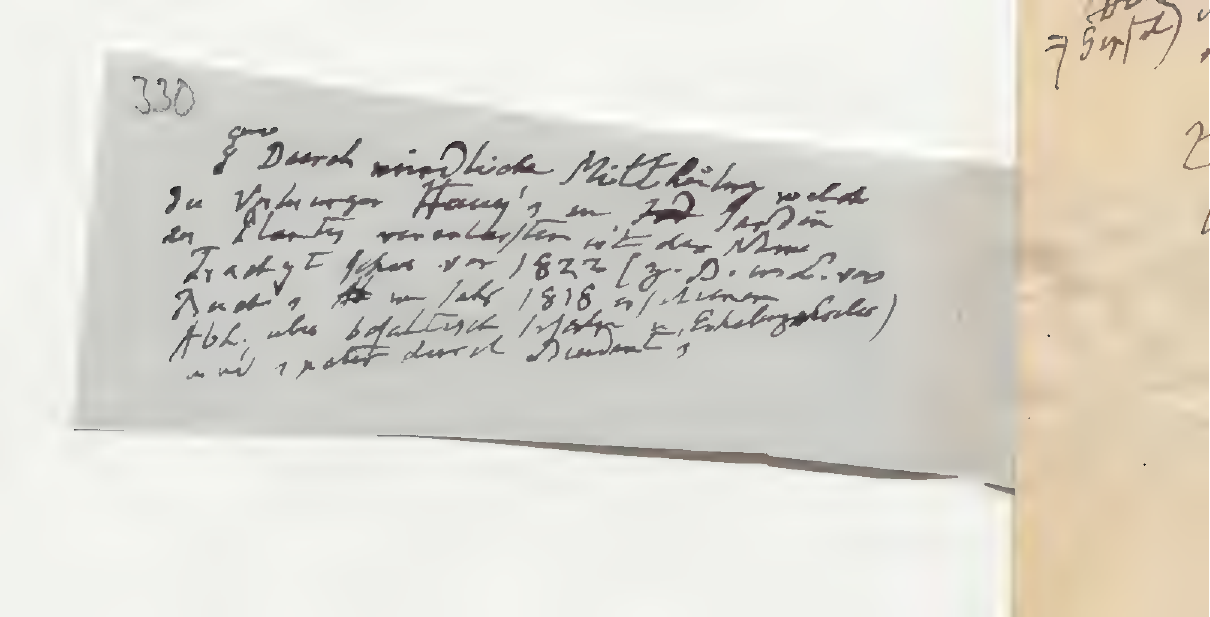 330
Durch mündliche Mittheilung welche
die Vorlesungen Hauy's im Jardin
des Plantes veranlassten ist der Name
Trachyt schon vor 1822 (z. B. in L. von
Buch's im Jahr 1818 erschienenen
Abh. über basaltisch Inseln u. Erhebungskrater)
und später durch Beudant's